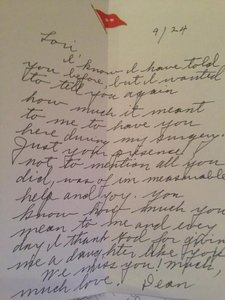 9/24
Lori,
I know I have told
you before, but I wanted
to tell you again
how much it meant
to me to have you
here during my surgery.
Just your presence,
not to mention all you
did, was of immeasurable
help and joy. You
know how much you
mean to me and every
day I thank God for giving
me a daughter like you!
We miss you! Much,
much love! Dean